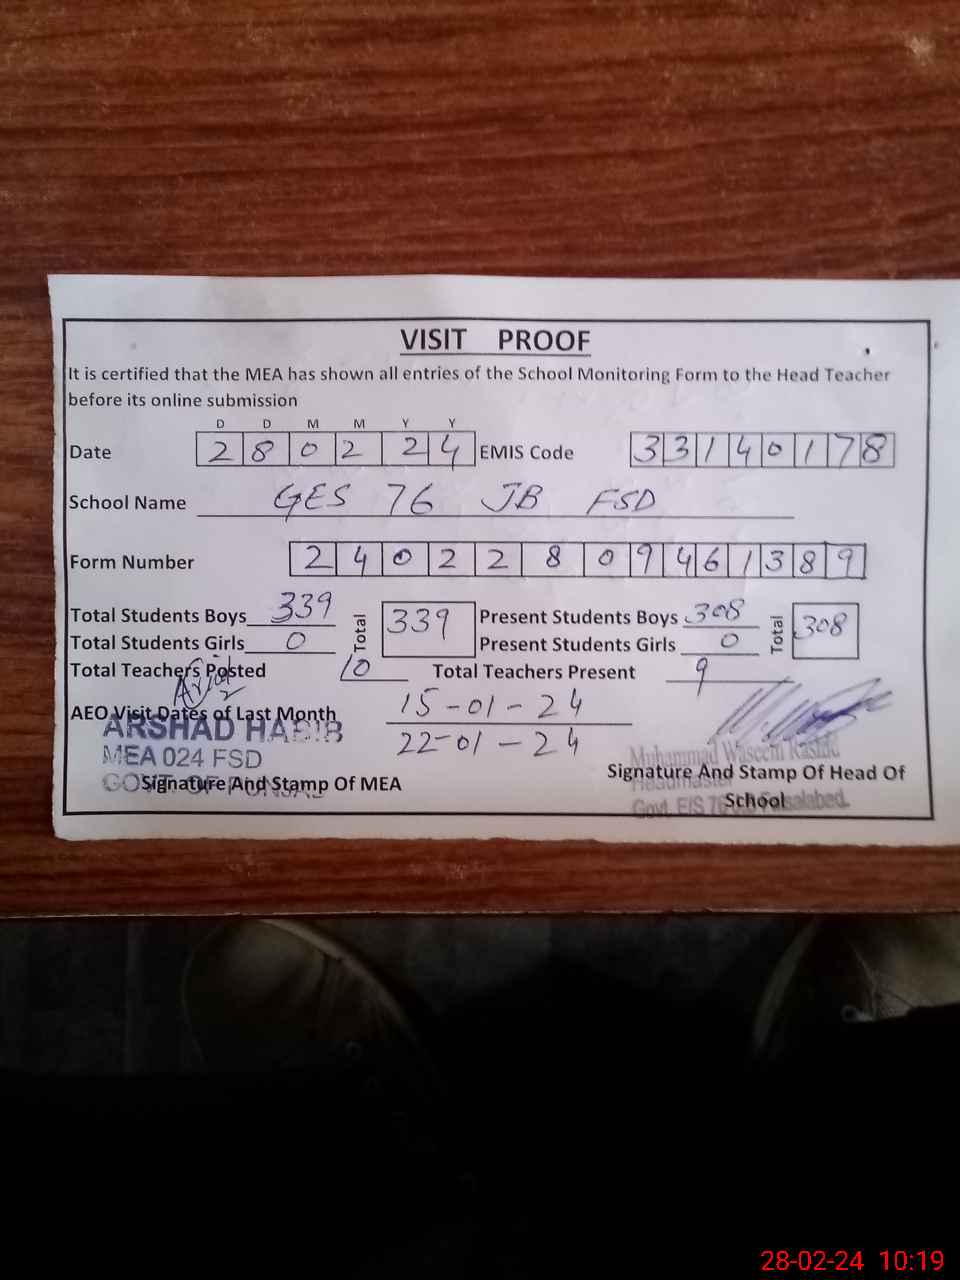 VISIT PROOF
It is certified that the MEA has shown all entries of the School Monitoring Form to the Head Teacher
before its online submission
D D M M Y Y
Date 28 02 24 EMIS Code 33140178
School Name GES 76 JB FSD
Form Number 24022809461389
Total Students Boys 339 Total 339 Present Students Boys 308 Total 308
Total Students Girls 0 Present Students Girls 0
Total Teachers Posted 10 Total Teachers Present 9
AEO Visit Dates of Last Month 15-01-24
22-01-24
ARSHAD HABIB
MEA 024 FSD
GOVT. OF PUNJAB
Signature And Stamp Of MEA
Muhammad Waseem Rashid
Headmaster
Signature And Stamp Of Head Of
School
Govt. E/S 76 J.B Faisalabad.
28-02-24 10:19